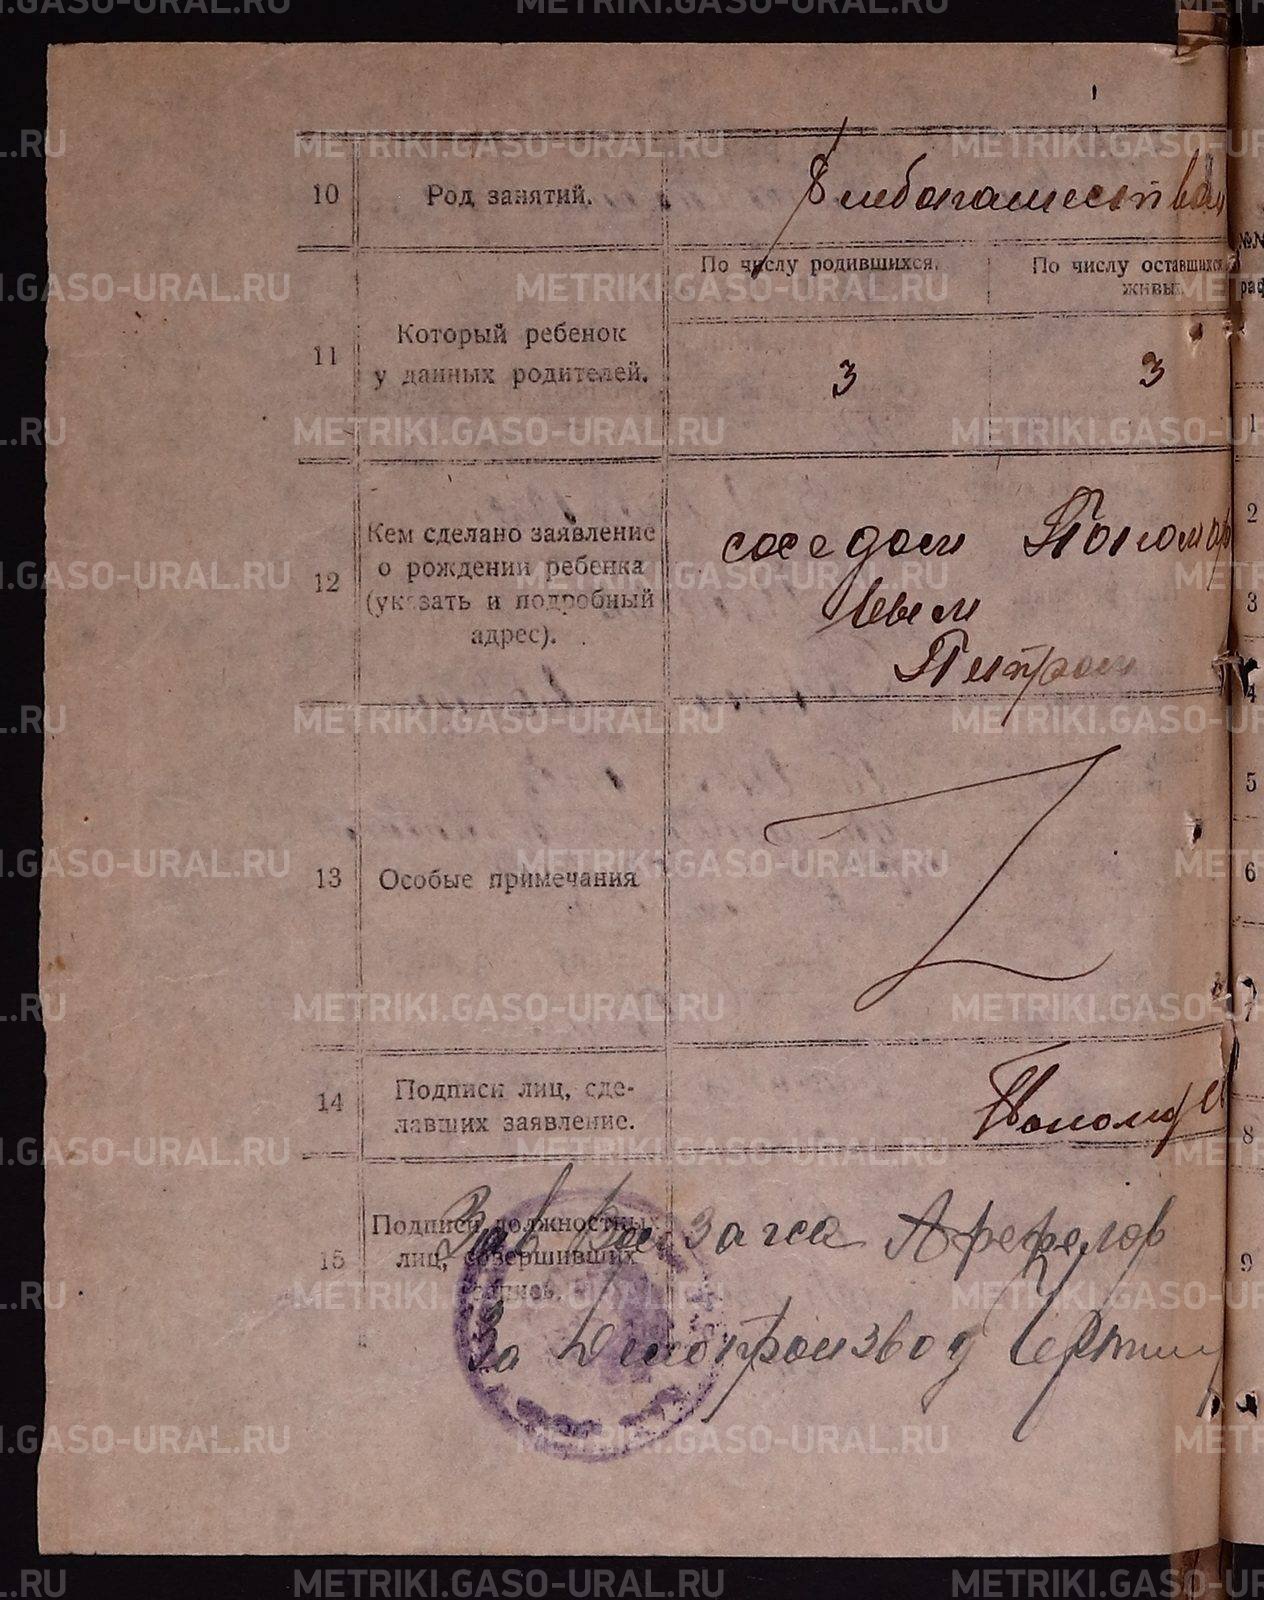 10 Род занятий. Хлебопашеством
По числу родившихся. По числу оставшихся живы
11 Который ребенок
у данных родителей.
3 3
12 Кем сделано заявление
о рождении ребенка
(указать и подробный
адрес).
соседом Пономар
евым
Петром
13 Особые примечания
14 Подписи лиц, сде-
лавших заявление.
Пономар
15 Подписи должностных
лиц, совершивших
запись.
Зав Загса
За Делопроизвод
№№
1
2
3
4
5
6
7
8
9
METRIKI.GASO-URAL.RU